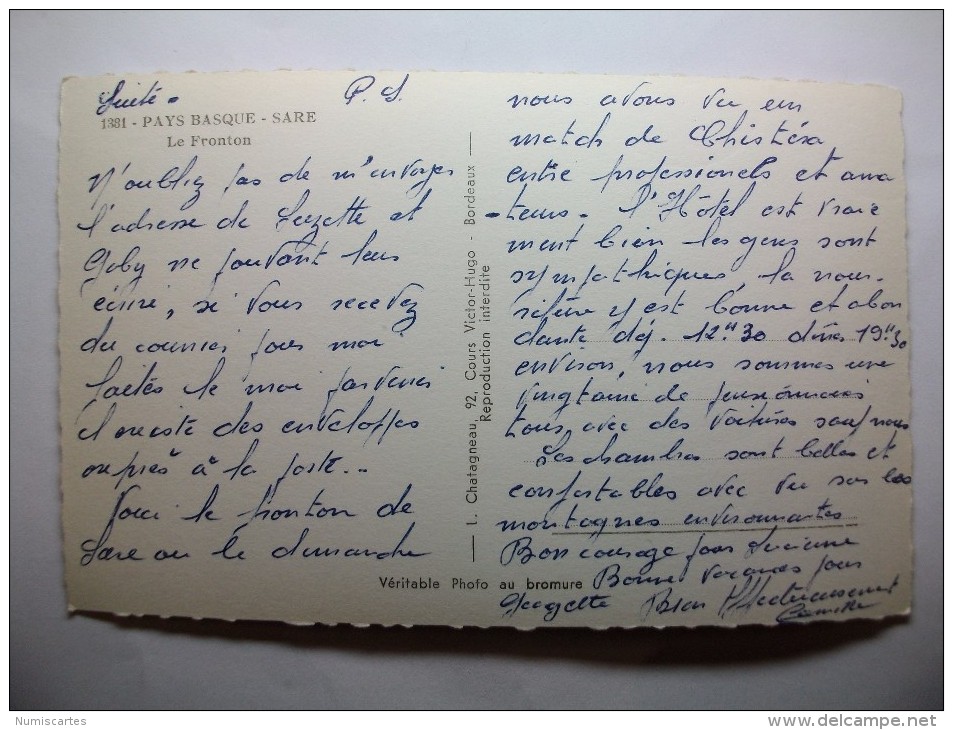 Suite - P.S.
1381 - PAYS BASQUE - SARE
Le Fronton
N'oubliez pas de m'envoyer
l'adresse de Suzette et
Goby ne pouvant leur
écrire, si vous recevez
du courrier pour moi
faites le moi parvenir
il existe des enveloppes
exprès à la poste...
Voici le fronton de
Sare ou le dimanche
L. Chatagneau, 92, Cours Victor-Hugo - Bordeaux
Reproduction interdite
Véritable Photo au bromure
nous avons vu un
match de Chistéra
entre professionels et ama
-teurs - l'Hôtel est vraie
ment bien les gens sont
sympathiques, la nour-
riture y est bonne et abon
dante dej. 12h30 diner 19h30
environ, nous sommes une
vingtaine de pensionnaires
tous avec des voitures sauf nous
Les chambres sont belles et
confortables avec vu sur les
montagnes environnantes
Bon courage pour Lucienne
Bonne vacances pour
Georgette Bien Affectueusement
Camille
Numiscartes
www.delcampe.net